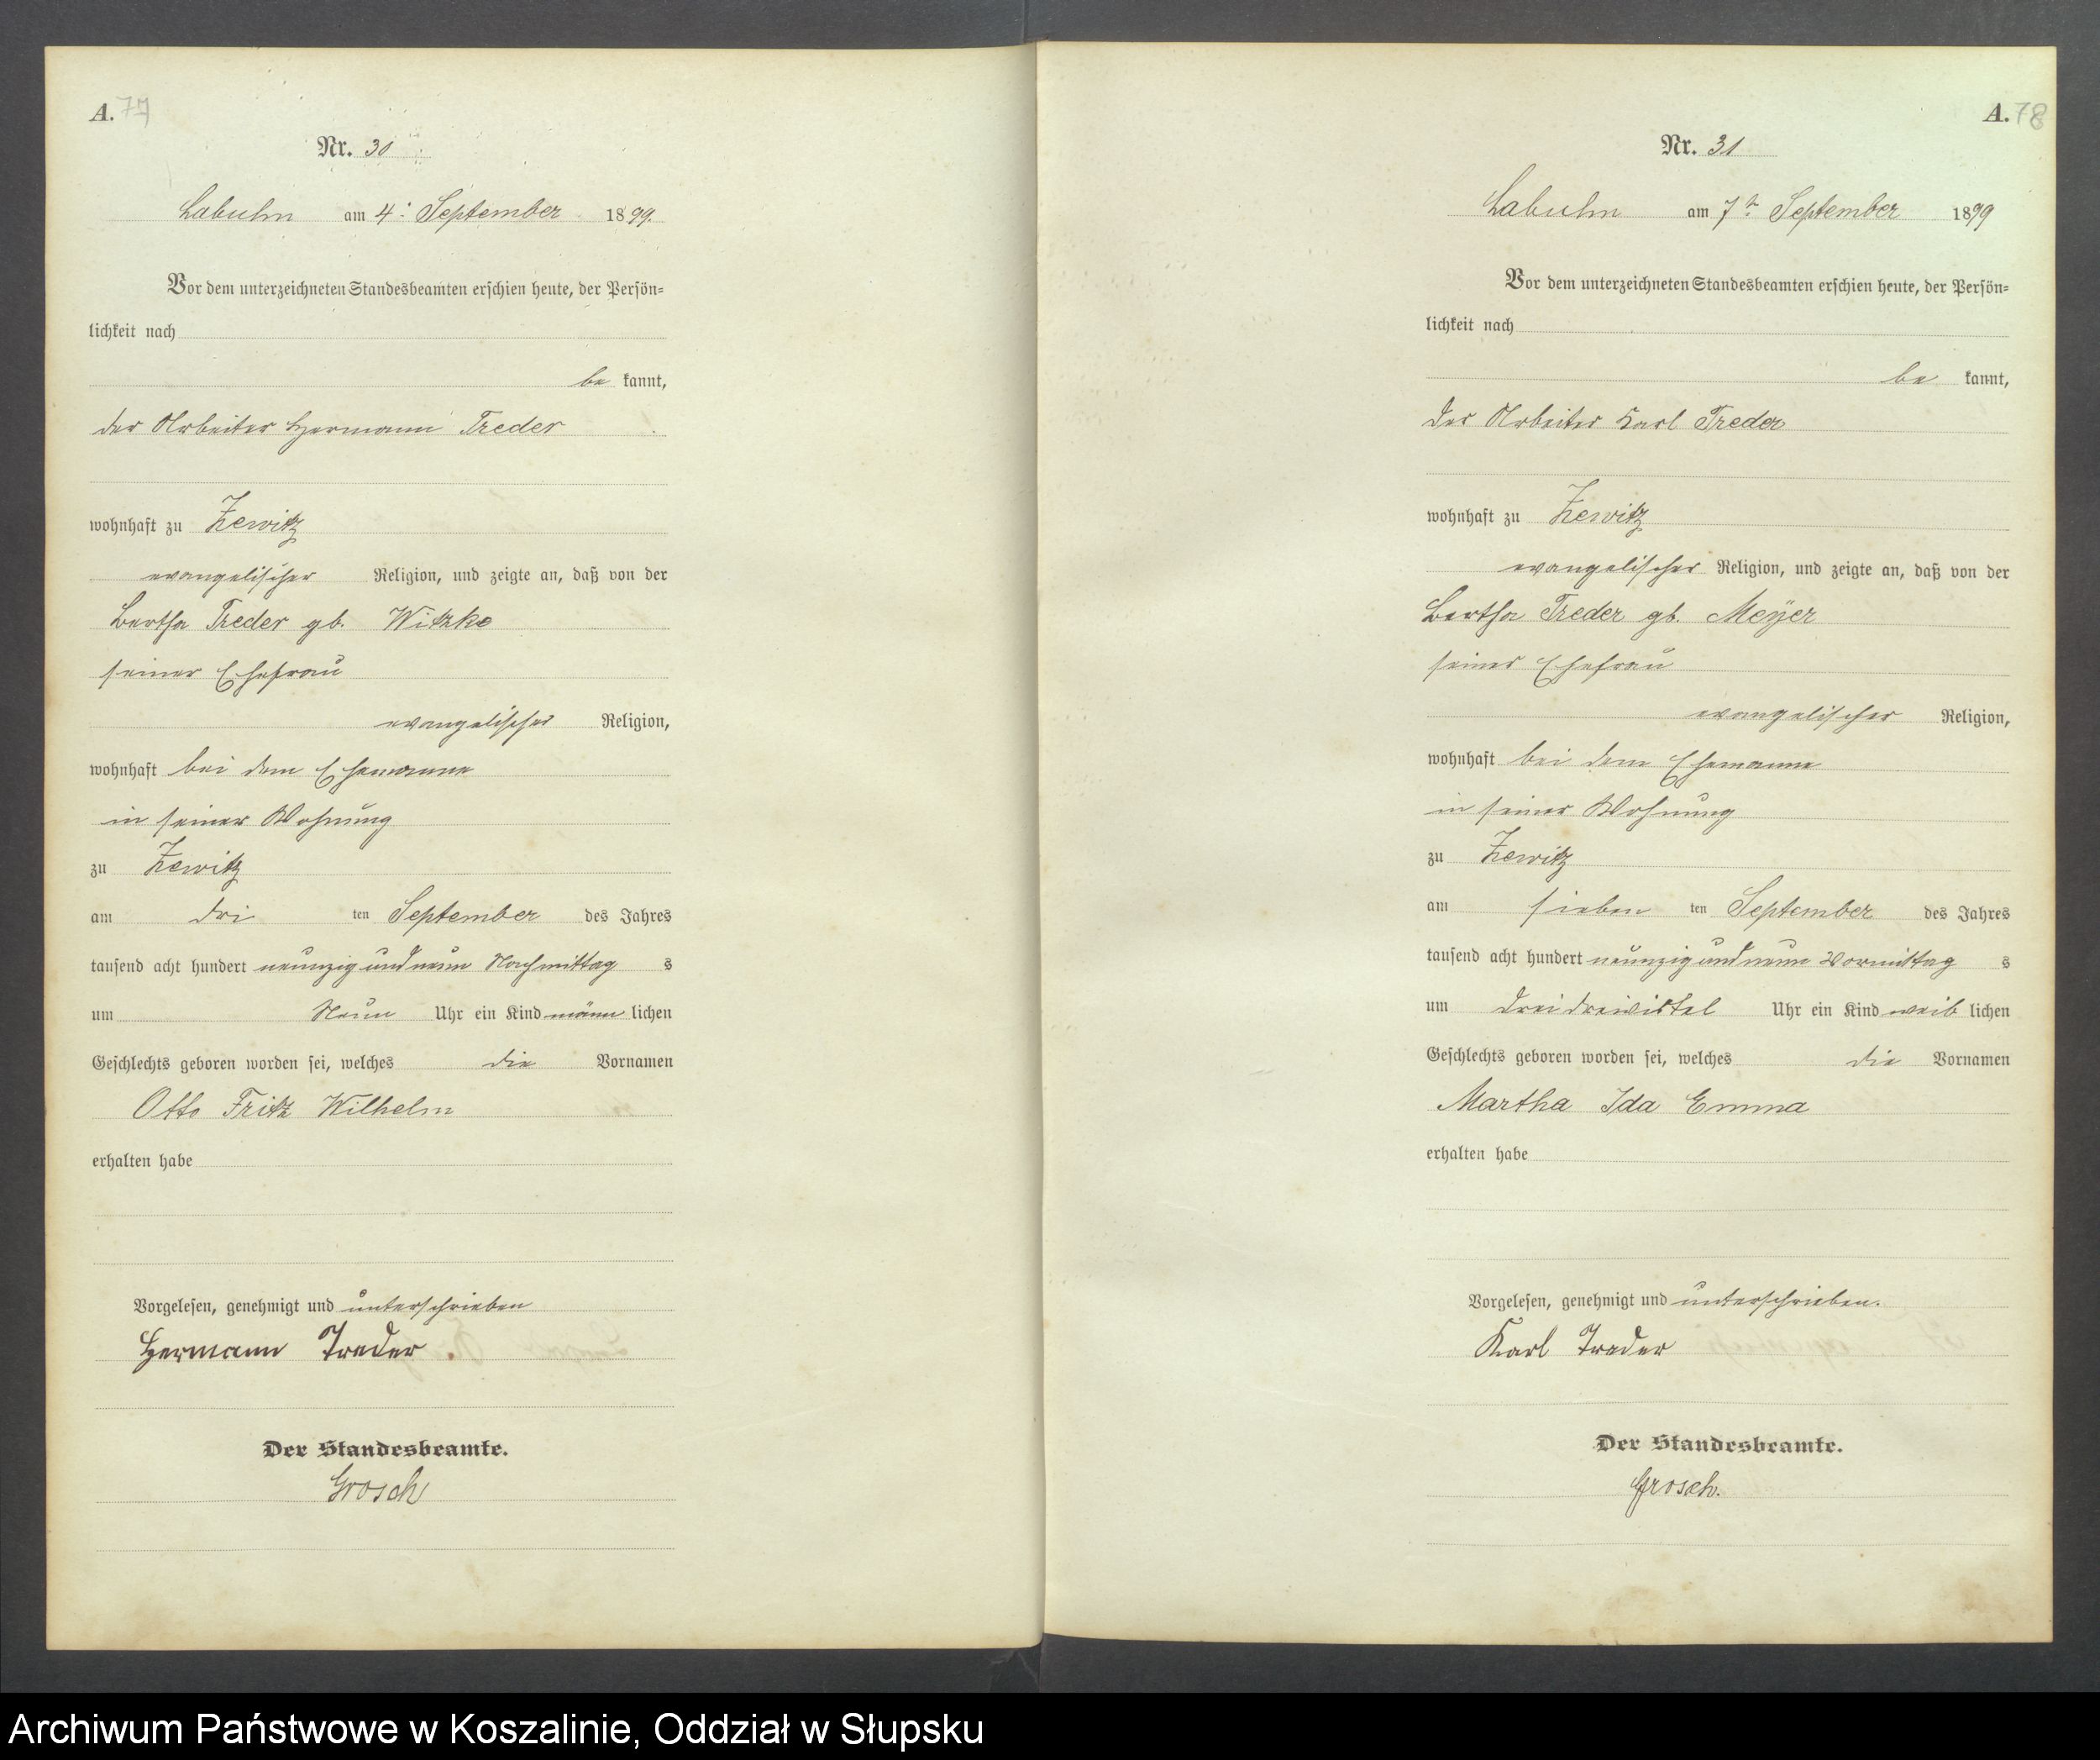 A. 77
Nr. 30
Labuhn am 4. September 1899.
Vor dem unterzeichneten Standesbeamten erschien heute, der Persön=
lichkeit nach
be kannt,
der Arbeiter Hermann Treder
wohnhaft zu Zewitz
evangelischer Religion, und zeigte an, daß von der
Bertha Treder gb. Witzke
seiner Ehefrau
evangelischer Religion,
wohnhaft bei dem Ehemanne
in seiner Wohnung
zu Zewitz
am dri ten September des Jahres
tausend acht hundert neunzig und neun Nachmittag s
um Neun Uhr ein Kind männ lichen
Geschlechts geboren worden sei, welches die Vornamen
Otto Fritz Wilhelm
erhalten habe
Vorgelesen, genehmigt und unterschrieben
Hermann Treder.
Der Standesbeamte.
Grosch
A. 78
Nr. 31
Labuhn am 7ten September 1899
Vor dem unterzeichneten Standesbeamten erschien heute, der Persön=
lichkeit nach
be kannt,
der Arbeiter Karl Treder
wohnhaft zu Zewitz
evangelischer Religion, und zeigte an, daß von der
Bertha Treder gb. Meÿer
seiner Ehefrau
evangelischer Religion,
wohnhaft bei dem Ehemanne
in seiner Wohnung
zu Zewitz
am sieben ten September des Jahres
tausend acht hundert neunzig und neun Vormittag s
um drei dreiviertel Uhr ein Kind weib lichen
Geschlechts geboren worden sei, welches die Vornamen
Martha Ida Emma
erhalten habe
Vorgelesen, genehmigt und unterschrieben.
Karl Treder
Der Standesbeamte.
Grosch.
Archiwum Państwowe w Koszalinie, Oddział w Słupsku